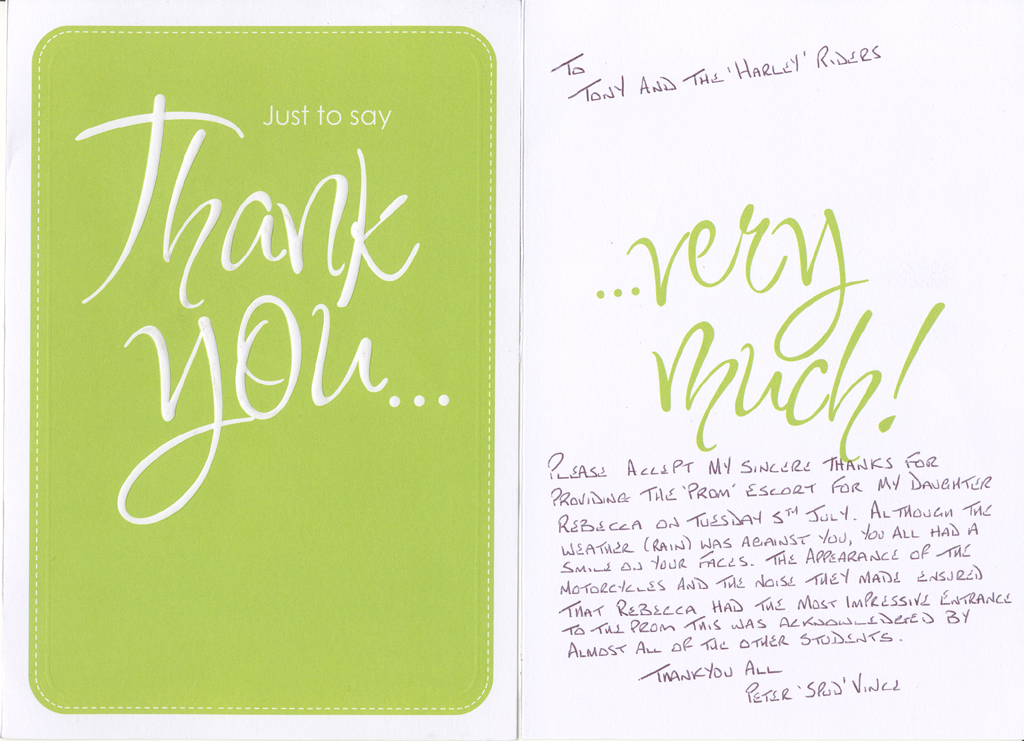 Just to say
Thank
you...
To
Tony and the 'Harley' Riders
...very
much!
Please accept my sincere thanks for
providing the 'Prom' escort for my daughter
Rebecca on Tuesday 5th July. Although the
weather (rain) was against you, you all had a
smile on your faces. The appearance of the
motorcycles and the noise they made ensured
that Rebecca had the most impressive entrance
to the prom this was acknowledged by
almost all of the other students.
Thankyou all
Peter 'Spud' Vince